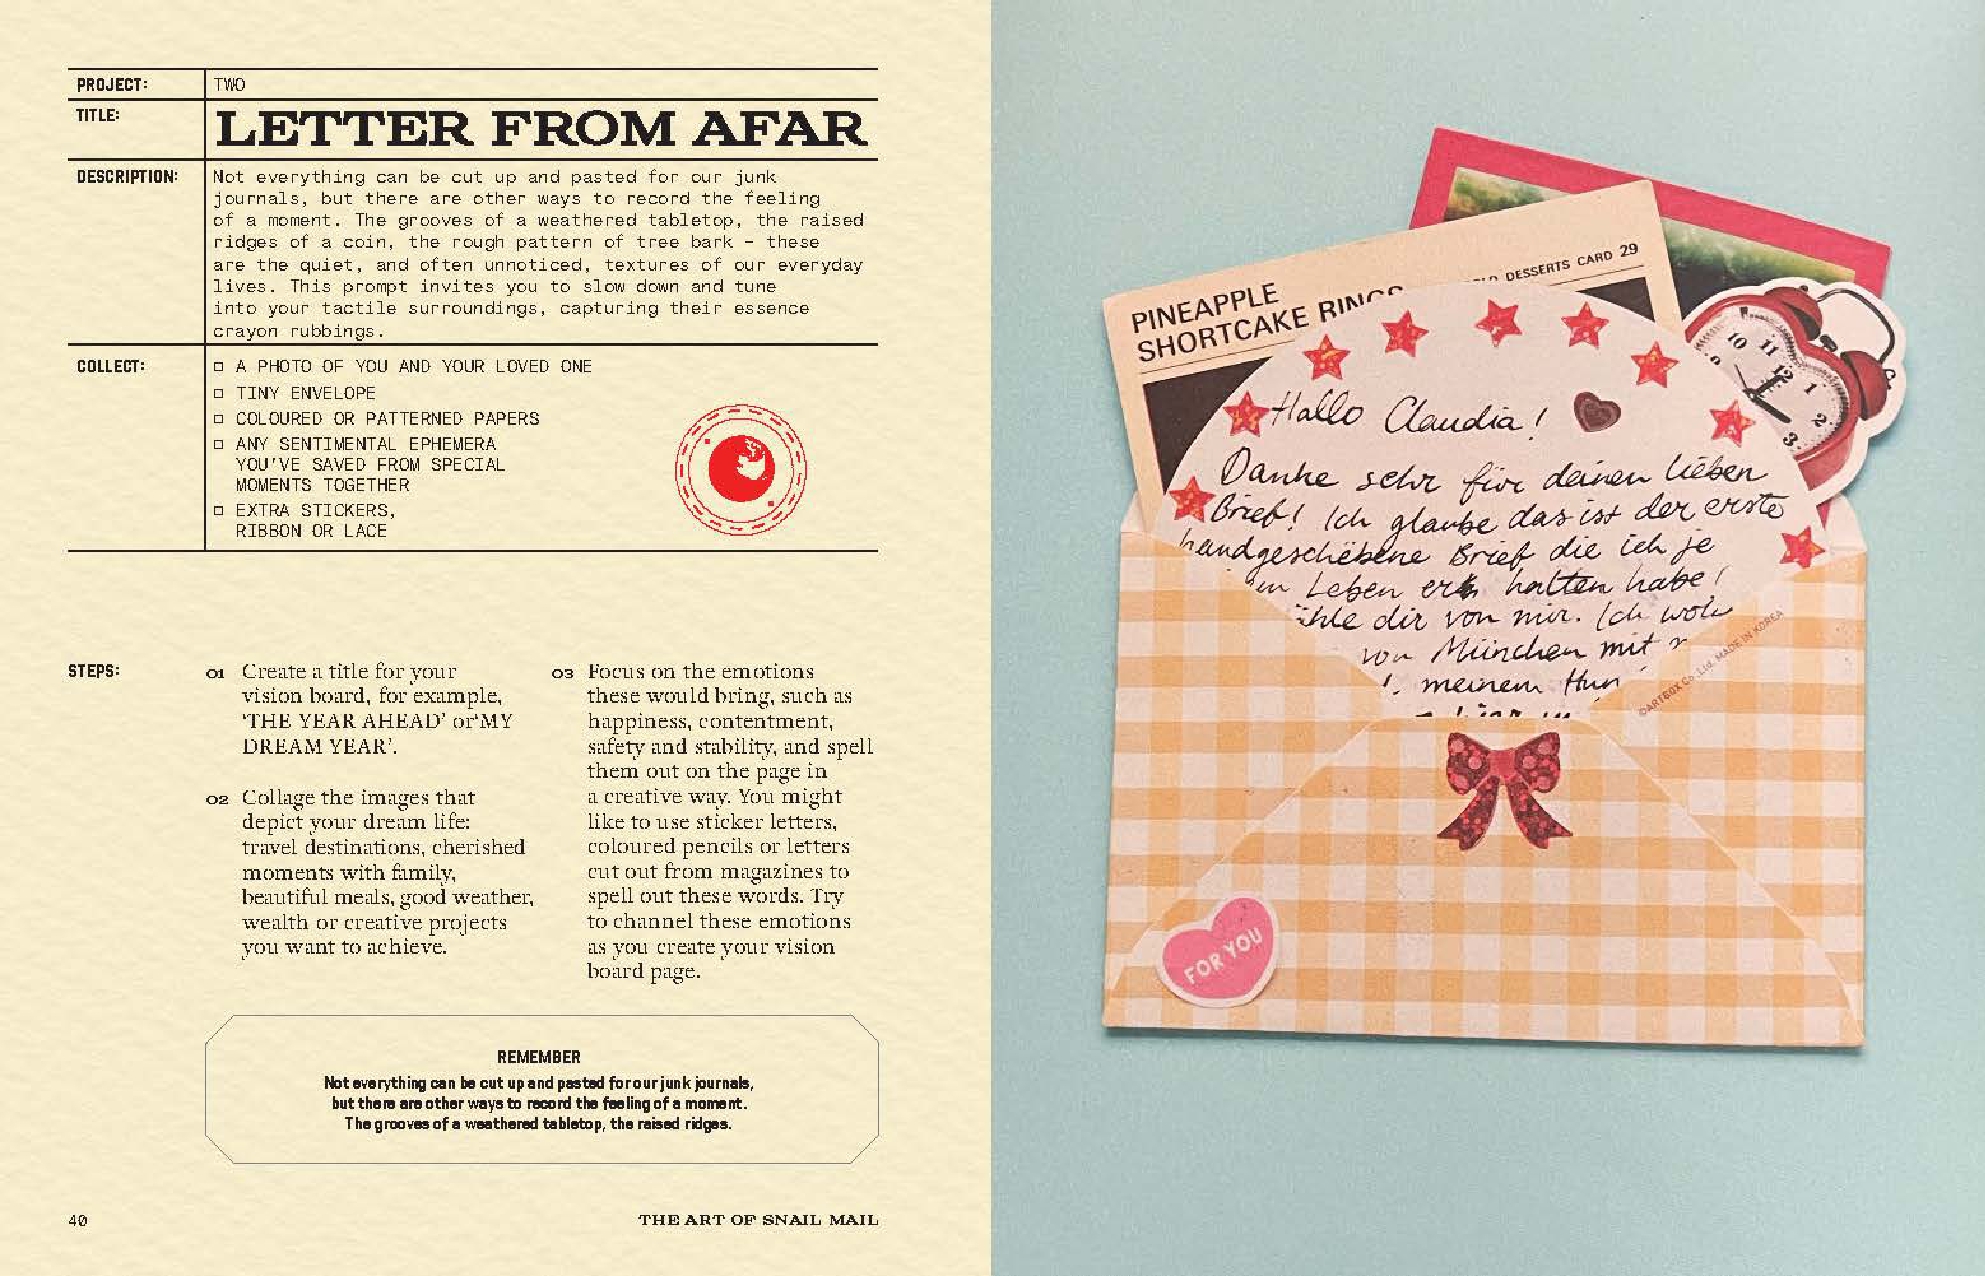 PROJECT: TWO
TITLE: LETTER FROM AFAR
DESCRIPTION: Not everything can be cut up and pasted for our junk
journals, but there are other ways to record the feeling
of a moment. The grooves of a weathered tabletop, the raised
ridges of a coin, the rough pattern of tree bark – these
are the quiet, and often unnoticed, textures of our everyday
lives. This prompt invites you to slow down and tune
into your tactile surroundings, capturing their essence
crayon rubbings.
COLLECT: □ A PHOTO OF YOU AND YOUR LOVED ONE
□ TINY ENVELOPE
□ COLOURED OR PATTERNED PAPERS
□ ANY SENTIMENTAL EPHEMERA
YOU'VE SAVED FROM SPECIAL
MOMENTS TOGETHER
□ EXTRA STICKERS,
RIBBON OR LACE
STEPS:
01 Create a title for your
vision board, for example,
'THE YEAR AHEAD' or'MY
DREAM YEAR'.
02 Collage the images that
depict your dream life:
travel destinations, cherished
moments with family,
beautiful meals, good weather,
wealth or creative projects
you want to achieve.
03 Focus on the emotions
these would bring, such as
happiness, contentment,
safety and stability, and spell
them out on the page in
a creative way. You might
like to use sticker letters,
coloured pencils or letters
cut out from magazines to
spell out these words. Try
to channel these emotions
as you create your vision
board page.
REMEMBER
Not everything can be cut up and pasted for our junk journals,
but there are other ways to record the feeling of a moment.
The grooves of a weathered tabletop, the raised ridges.
40
THE ART OF SNAIL MAIL
DESSERTS CARD 29
PINEAPPLE
SHORTCAKE RINGS
10 11 12 1 2 3
Hallo Claudia!
Danke sehr für deinen lieben
Brief! Ich glaube das ist der erste
handgeschëbene Brief die ich je
Leben erhalten habe!
dir von mir. Ich
von München mit
meinem
©ARTBOX CO., Ltd. MADE IN KOREA
FOR YOU